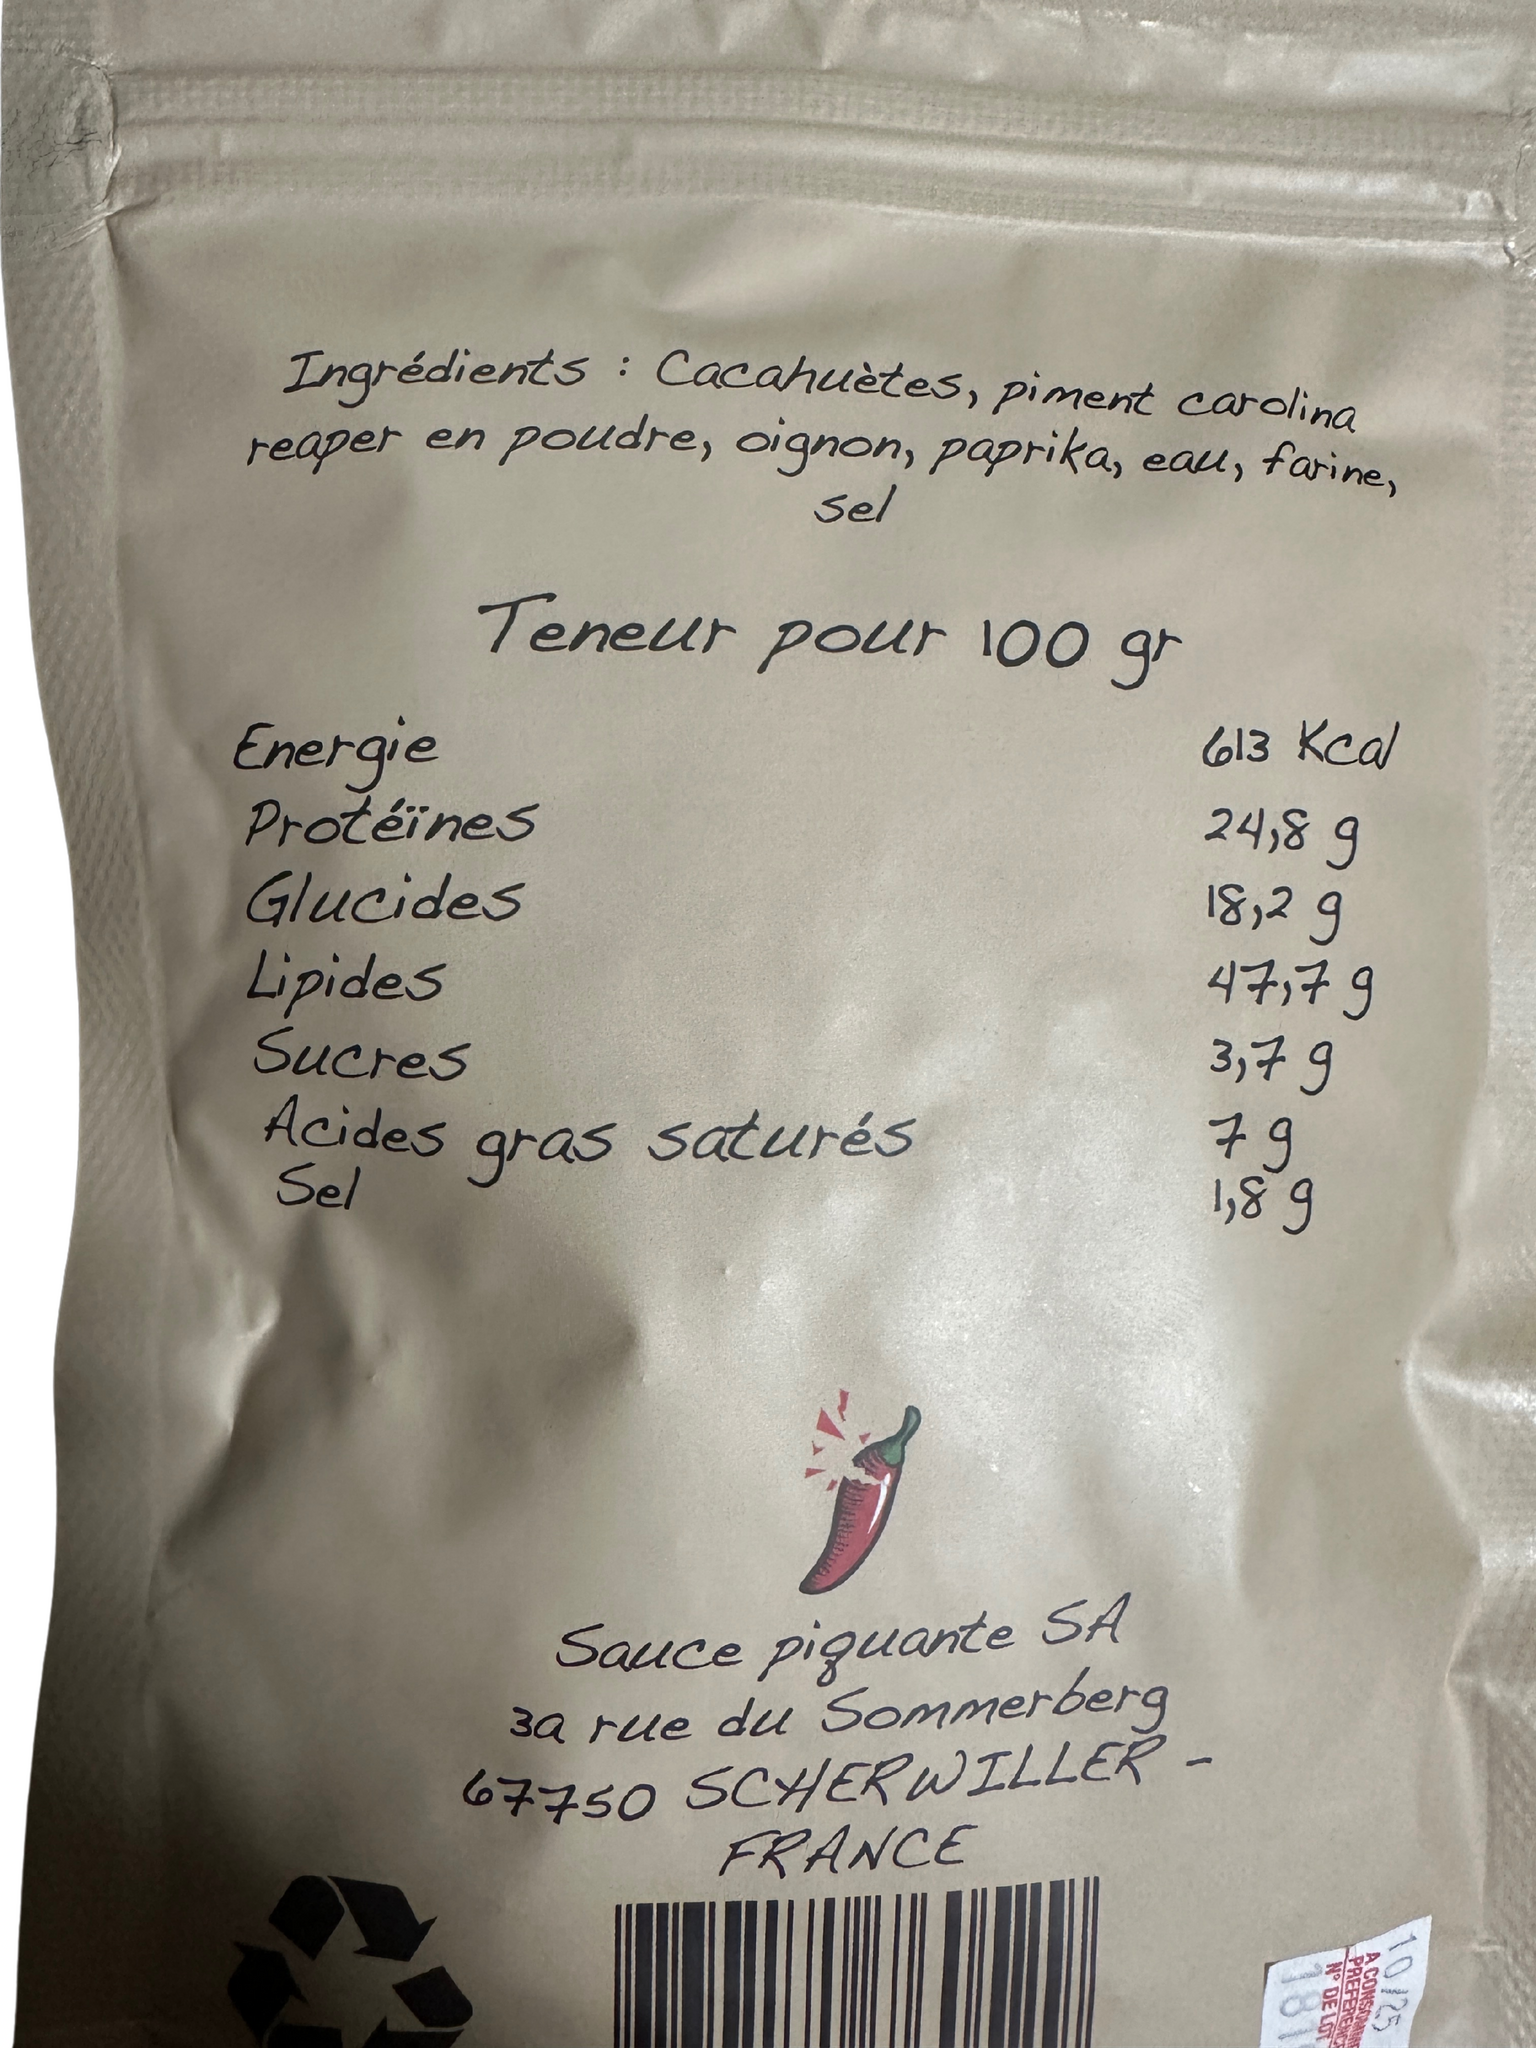 Ingrédients : Cacahuètes, piment carolina
reaper en poudre, oignon, paprika, eau, farine,
sel
Teneur pour 100 gr
Energie 613 Kcal
Protéïnes 24,8 g
Glucides 18,2 g
Lipides 47,7 g
Sucres 3,7 g
Acides gras saturés 7 g
Sel 1,8 g
Sauce piquante SA
3a rue du Sommerberg
67750 SCHERWILLER -
FRANCE
10/25
N° DE LOT